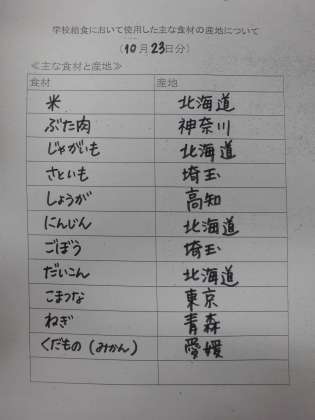 学校給食において使用した主な食材の産地について
(10月23日分)
≪主な食材と産地≫
食材 産地
米 北海道
ぶた肉 神奈川
じゃがいも 北海道
さといも 埼玉
しょうが 高知
にんじん 北海道
ごぼう 埼玉
だいこん 北海道
こまつな 東京
ねぎ 青森
くだもの(みかん) 愛媛